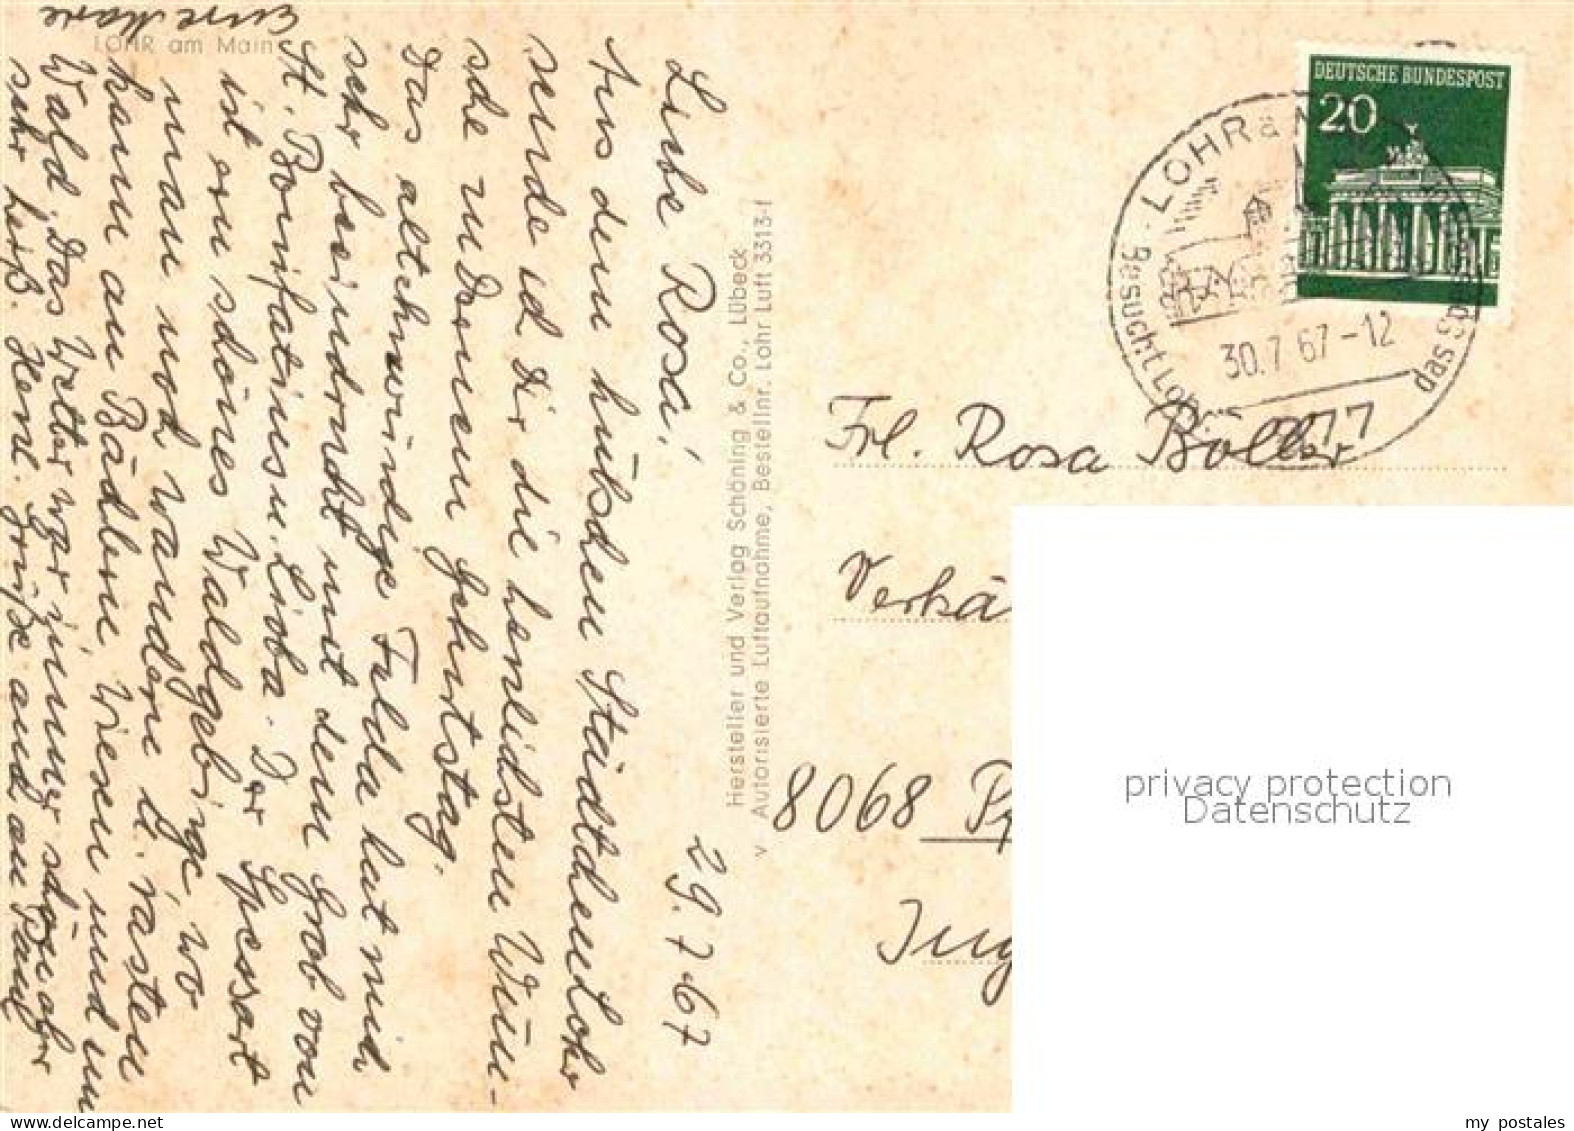 LOHR am Main
29.7.67
Liebe Rosa!
Aus dem hübschen Städtchen Lohr
sende ich Dir die herzlichsten Wün-
sche zu Deinem Geburtstag.
Das altehrwürdige Fulda hat mich
sehr beeindruckt mit dem Grab von
St. Bonifatius u. Lioba. Der Spessart
ist ein schönes Waldgebirge, wo
man noch wandern u. rasten
kann an Bächlein, Wiesen und im
Wald. Das Wetter war immer schön aber
sehr heiß. Herzl. Grüße auch an
Eure Marie
Hersteller und Verlag Schöning & Co., Lübeck
v Autorisierte Luftaufnahme, Bestellnr. Lohr Luft 3313-f
DEUTSCHE BUNDESPOST
20
LOHR a. M
Besucht Lohr
das Sp
30.7 67-12
Frl. Rosa Boller
Verkä
8068
privacy protection
Datenschutz
my postales